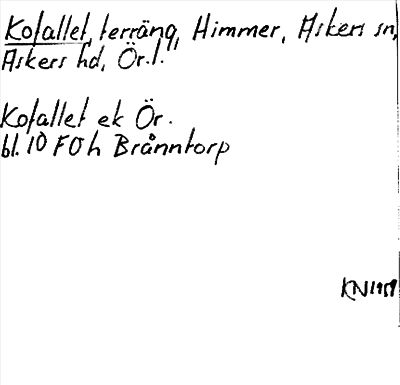 Kofallet, terräng, Himmer, Askers sn,
Askers hd, Ör.l.
Kofallet ek Ör.
bl. 10 F0h Brånntorp